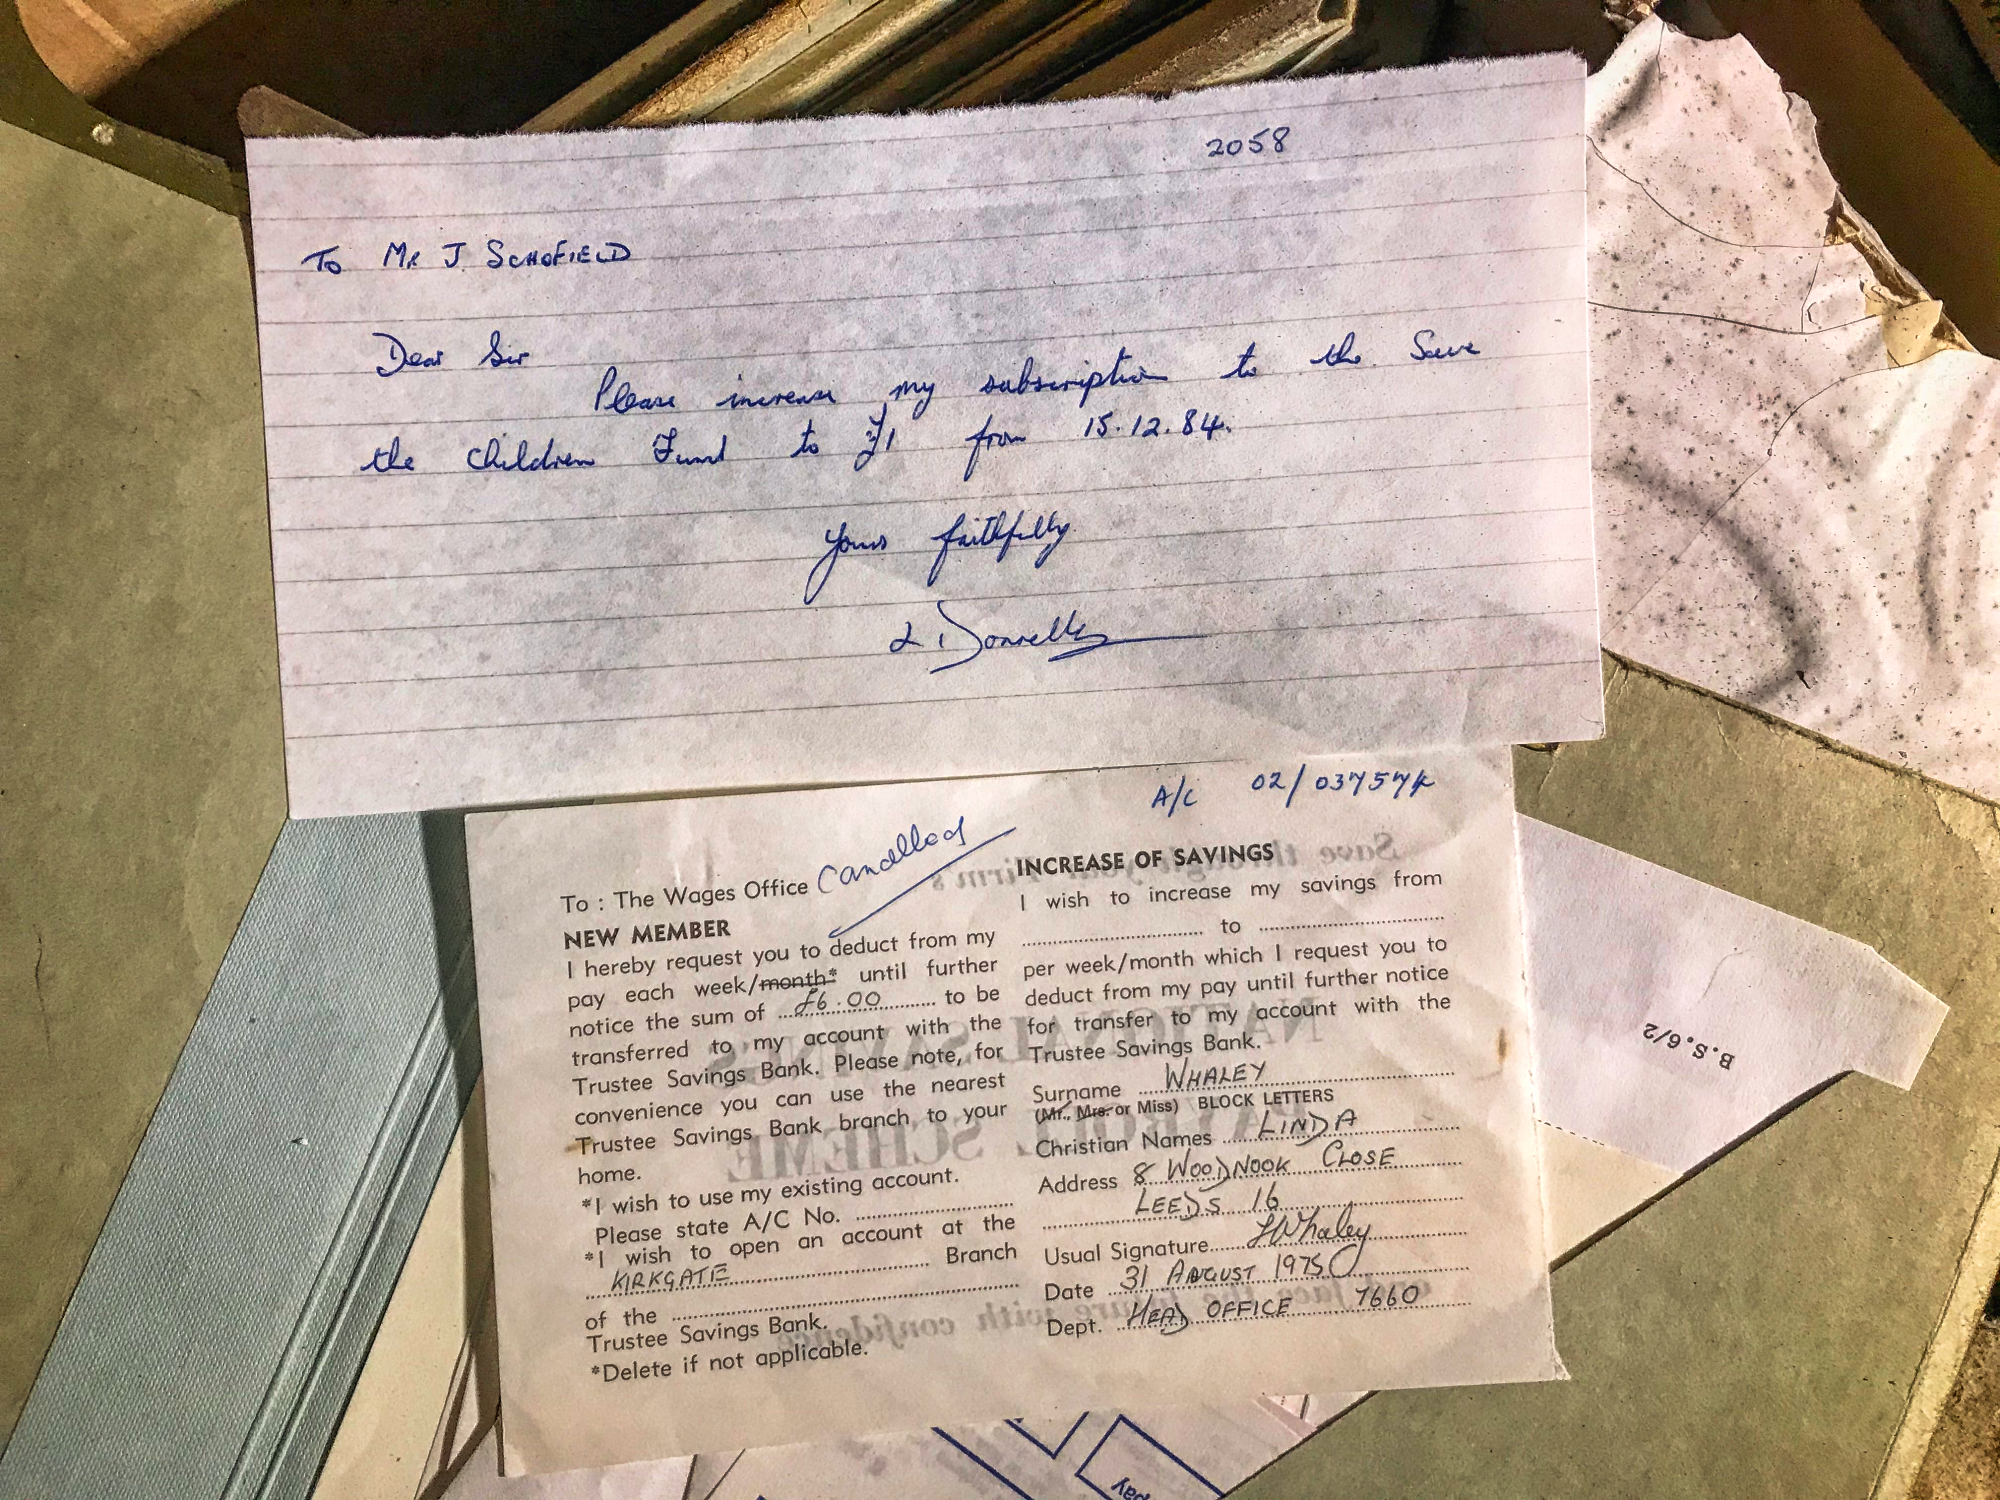 2058
To Mr J. SCHOFIELD
Dear Sir
Please increase my subscription to the Save
the Children Fund to £1 from 15.12.84.
Yours faithfully
L. Donnelly
A/C 02/037574
Cancelled
To : The Wages Office
NEW MEMBER
I hereby request you to deduct from my
pay each week/month* until further
notice the sum of £6.00 to be
transferred to my account with the
Trustee Savings Bank. Please note, for
convenience you can use the nearest
Trustee Savings Bank branch to your
home.
*I wish to use my existing account.
Please state A/C No.
*I wish to open an account at the
KIRKGATE Branch
of the
Trustee Savings Bank.
*Delete if not applicable.
INCREASE OF SAVINGS
I wish to increase my savings from
to
per week/month which I request you to
deduct from my pay until further notice
for transfer to my account with the
Trustee Savings Bank.
Surname WHALEY
(Mr., Mrs. or Miss) BLOCK LETTERS
Christian Names LINDA
Address 8 WOODNOOK CLOSE
LEEDS 16
Usual Signature LWhaley
Date 31 AUGUST 1975
Dept. HEAD OFFICE 7660
Save through your firm's
NATIONAL SAVINGS
SCHEME
and face the future with confidence
B.S.6/2
pay